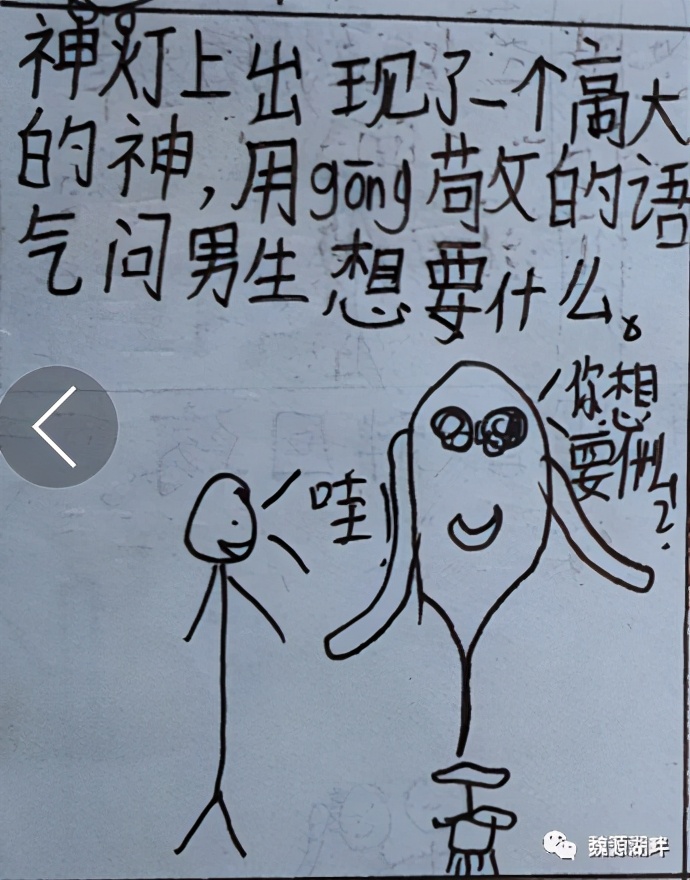 神灯上出现了一个高大
的神，用gōng苟文的语
气问男生想要什么。
你想
要什么？
哇！
魏源湖畔